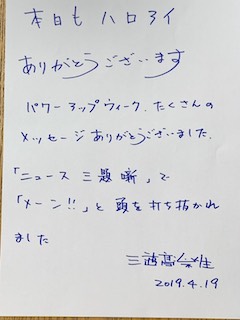 本日も ハロアイ
ありがとうございます
パワーアップウィーク、たくさんの
メッセージありがとうございました.
「ニュース 三題噺」で
「メーン!!」と 頭を打ち抜かれ
ました
三遊亭
2019.4.19